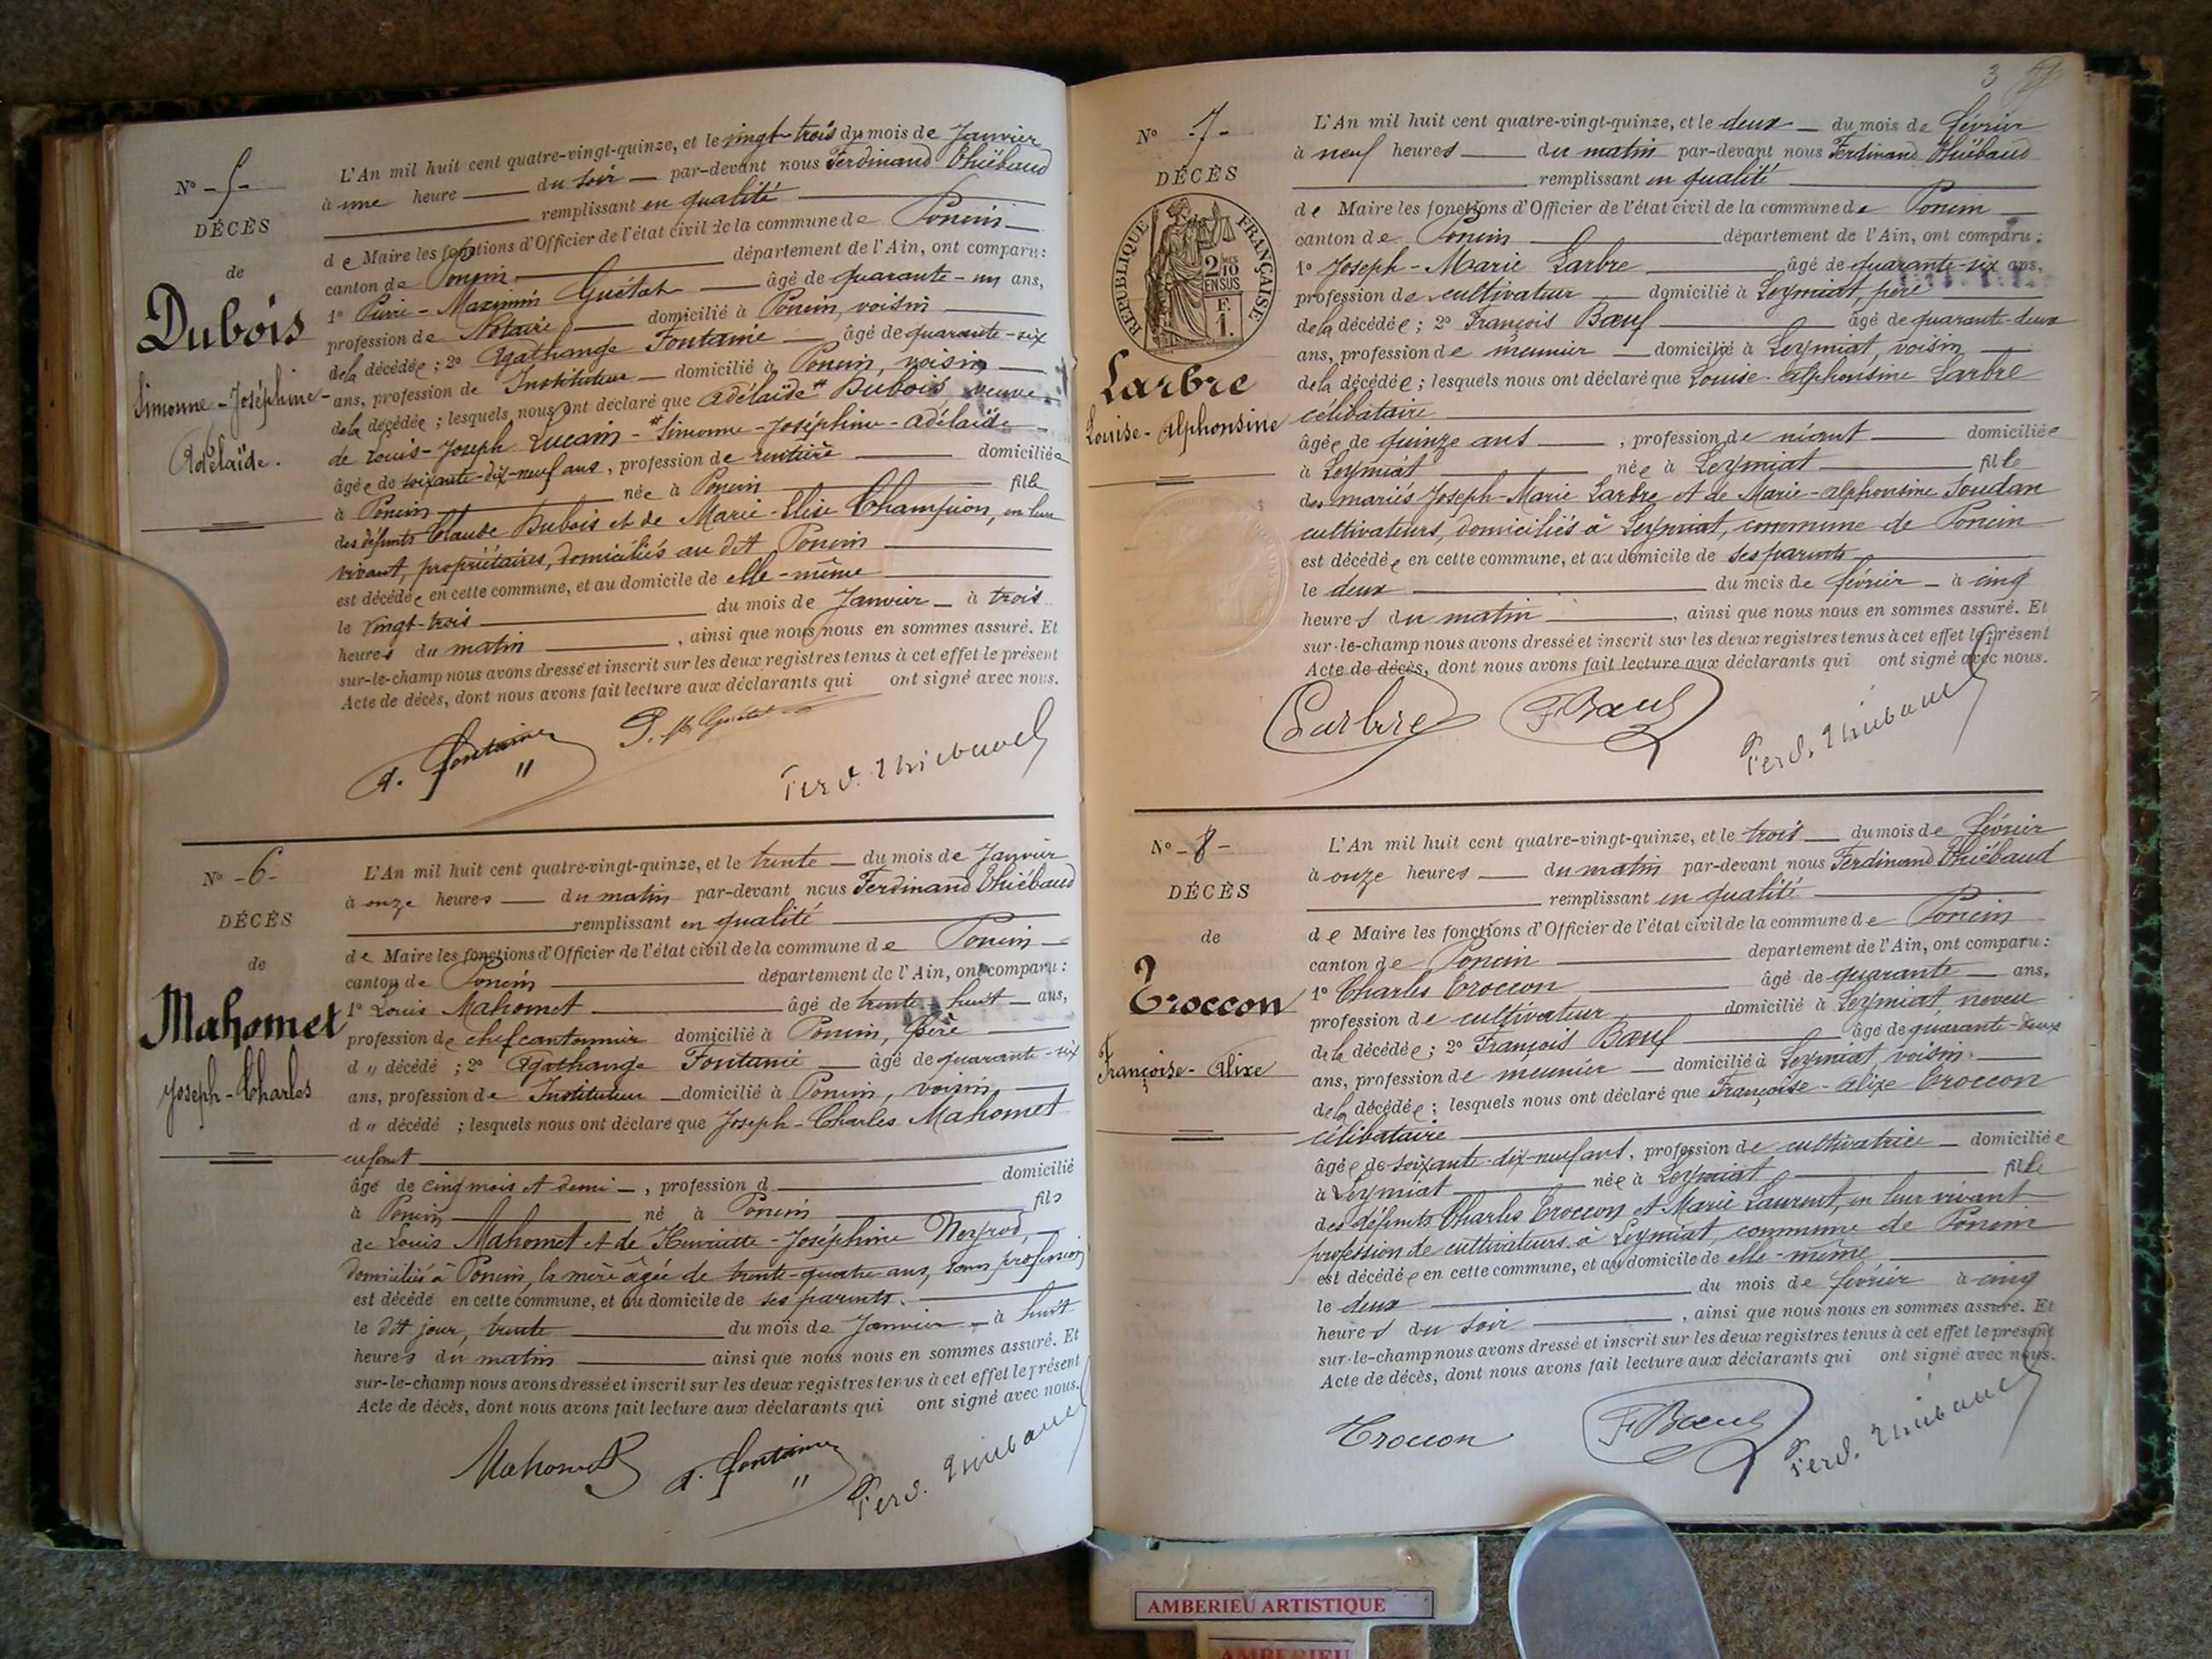 N° -5-
DÉCÈS
de
Dubois
Simonne-Joséphine-
Adélaïde.
L'An mil huit cent quatre-vingt-quinze, et le vingt-trois du mois de Janvier
à une heure du soir par-devant nous Ferdinand Thiébaud
remplissant en qualité
de Maire les fonctions d'Officier de l'état civil de la commune de Poncin
canton de Poncin département de l'Ain, ont comparu:
1° Pierre-Maximin Guétat âgé de quarante-un ans,
profession de Notaire domicilié à Poncin, voisin
de la décédée; 2° Agathange Fontaine âgé de quarante-six
ans, profession de Instituteur domicilié à Poncin, voisin
de la décédée; lesquels nous ont déclaré que Adélaïde * Dubois, veuve
de Louis-Joseph Lucain - * Simonne-Joséphine-Adélaïde
âgée de soixante-dix-neuf ans, profession de rentière domiciliée
à Poncin née à Poncin fille
des défunts Claude Dubois et de Marie-Elise Champion, en leur
vivant, propriétaires, domiciliés au dit Poncin
est décédée en cette commune, et au domicile de elle-même
le vingt-trois du mois de Janvier à trois
heures du matin, ainsi que nous nous en sommes assuré. Et
sur-le-champ nous avons dressé et inscrit sur les deux registres tenus à cet effet le présent
Acte de décès, dont nous avons fait lecture aux déclarants qui ont signé avec nous.
A. Fontaine P. M. Guétat Ferd. Thiebaud
N° -6-
DÉCÈS
de
Mahomet
Joseph-Charles
L'An mil huit cent quatre-vingt-quinze, et le trente du mois de Janvier
à onze heures du matin par-devant nous Ferdinand Thiébaud
remplissant en qualité
de Maire les fonctions d'Officier de l'état civil de la commune de Poncin
canton de Poncin département de l'Ain, ont comparu:
1° Louis Mahomet âgé de trente-huit ans,
profession de chef cantonnier domicilié à Poncin, père
d " décédé; 2° Agathange Fontaine âgé de quarante-six
ans, profession de Instituteur domicilié à Poncin, voisin,
d " décédé; lesquels nous ont déclaré que Joseph-Charles Mahomet
enfant
âgé de cinq mois et demi, profession d domicilié
à Poncin né à Poncin fils
de Louis Mahomet et de Henriette-Joséphine Neyrod,
domiciliés à Poncin, la mère âgée de trente-quatre ans, sans profession
est décédé en cette commune, et au domicile de ses parents.
le dit jour, trente du mois de Janvier à huit
heures du matin ainsi que nous nous en sommes assuré. Et
sur-le-champ nous avons dressé et inscrit sur les deux registres tenus à cet effet le présent
Acte de décès, dont nous avons fait lecture aux déclarants qui ont signé avec nous.
Mahomet A. Fontaine Ferd. Thiebaud
3
N° -7-
DÉCÈS
RÉPUBLIQUE FRANÇAISE
2/10 MES
EN SUS
F.
1.
Larbre
Louise-Alphonsine
L'An mil huit cent quatre-vingt-quinze, et le deux du mois de février
à neuf heures du matin par-devant nous Ferdinand Thiébaud
remplissant en qualité
de Maire les fonctions d'Officier de l'état civil de la commune de Poncin
canton de Poncin département de l'Ain, ont comparu:
1° Joseph-Marie Larbre âgé de quarante-six ans,
profession de cultivateur domicilié à Leymiat, père
de la décédée; 2° François Bœuf âgé de quarante-deux
ans, profession de meunier domicilié à Leymiat, voisin
de la décédée; lesquels nous ont déclaré que Louise-Alphonsine Larbre
célibataire
âgée de quinze ans, profession de néant domiciliée
à Leymiat née à Leymiat fille
des mariés Joseph-Marie Larbre et de Marie-Alphonsine Soudan
cultivateurs, domiciliés à Leymiat, commune de Poncin
est décédée en cette commune, et au domicile de ses parents
le deux du mois de février à cinq
heures du matin, ainsi que nous nous en sommes assuré. Et
sur-le-champ nous avons dressé et inscrit sur les deux registres tenus à cet effet le présent
Acte de décès, dont nous avons fait lecture aux déclarants qui ont signé avec nous.
Larbre F Bœuf Ferd. Thiebaud
N° -8-
DÉCÈS
de
Troccon
Françoise-Alixe
L'An mil huit cent quatre-vingt-quinze, et le trois du mois de février
à onze heures du matin par-devant nous Ferdinand Thiébaud
remplissant en qualité
de Maire les fonctions d'Officier de l'état civil de la commune de Poncin
canton de Poncin département de l'Ain, ont comparu:
1° Charles Troccon âgé de quarante ans,
profession de cultivateur domicilié à Leymiat neveu
de la décédée; 2° François Bœuf âgé de quarante-deux
ans, profession de meunier domicilié à Leymiat, voisin.
de la décédée; lesquels nous ont déclaré que Françoise-Alixe Troccon
célibataire
âgée de soixante-dix-neuf ans, profession de cultivatrice domiciliée
à Leymiat née à Leymiat fille
des défunts Charles Troccon et Marie Laurent, en leur vivant
profession de cultivateurs à Leymiat, commune de Poncin
est décédée en cette commune, et au domicile de elle-même
le deux du mois de février à cinq
heures du soir, ainsi que nous nous en sommes assuré. Et
sur-le-champ nous avons dressé et inscrit sur les deux registres tenus à cet effet le présent
Acte de décès, dont nous avons fait lecture aux déclarants qui ont signé avec nous.
Troccon F Bœuf Ferd. Thiebaud
AMBERIEU ARTISTIQUE
AMBERIEU